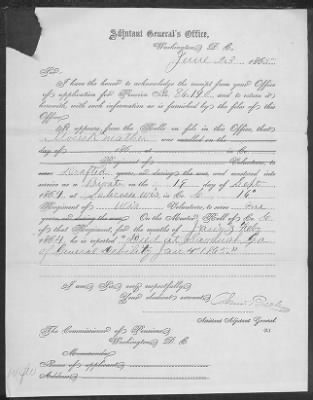 Adjutant General's Office,
Washington, D. C.
June 23 186
Sir:
I have the honor to acknowledge the receipt from your Office
of application for Pension No. 86.196, and to return it
herewith, with such information as is furnished by the files of this
Office.
It appears from the Rolls on file in this Office, that
was enrolled on the
day of 186 , in Co.
Regiment of Volunteers, to
serve Drafted years, or during the war, and mustered into
service as a Private on the 19 day of Sept
1864, at Wis, in Co. G, 16
Regiment of Wis Volunteers, to serve one
year, or during the war. On the Muster Roll of Co. G
of that Regiment, for the months of Jany & Feby
186 , he is reported "Died at Ga
of General debility Jan 4 1865"
I am, Sir, very respectfully,
Your obedient servant,
Assistant Adjutant General.
The Commissioner of Pensions,
Washington, D. C.
Memoranda:
Name of applicant,
Address,